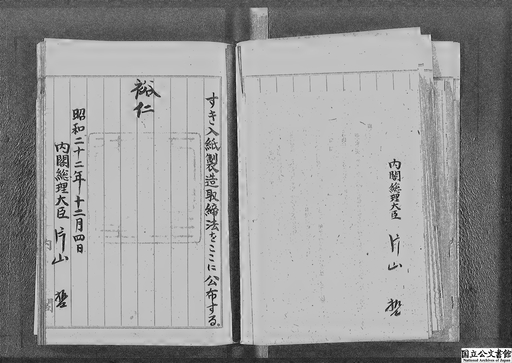 内閣総理大臣 片山 哲
すき入紙製造取締法をここに公布する。
裕仁
昭和二十二年十二月四日
内閣総理大臣 片山 哲
内閣
国立公文書館
National Archives of Japan